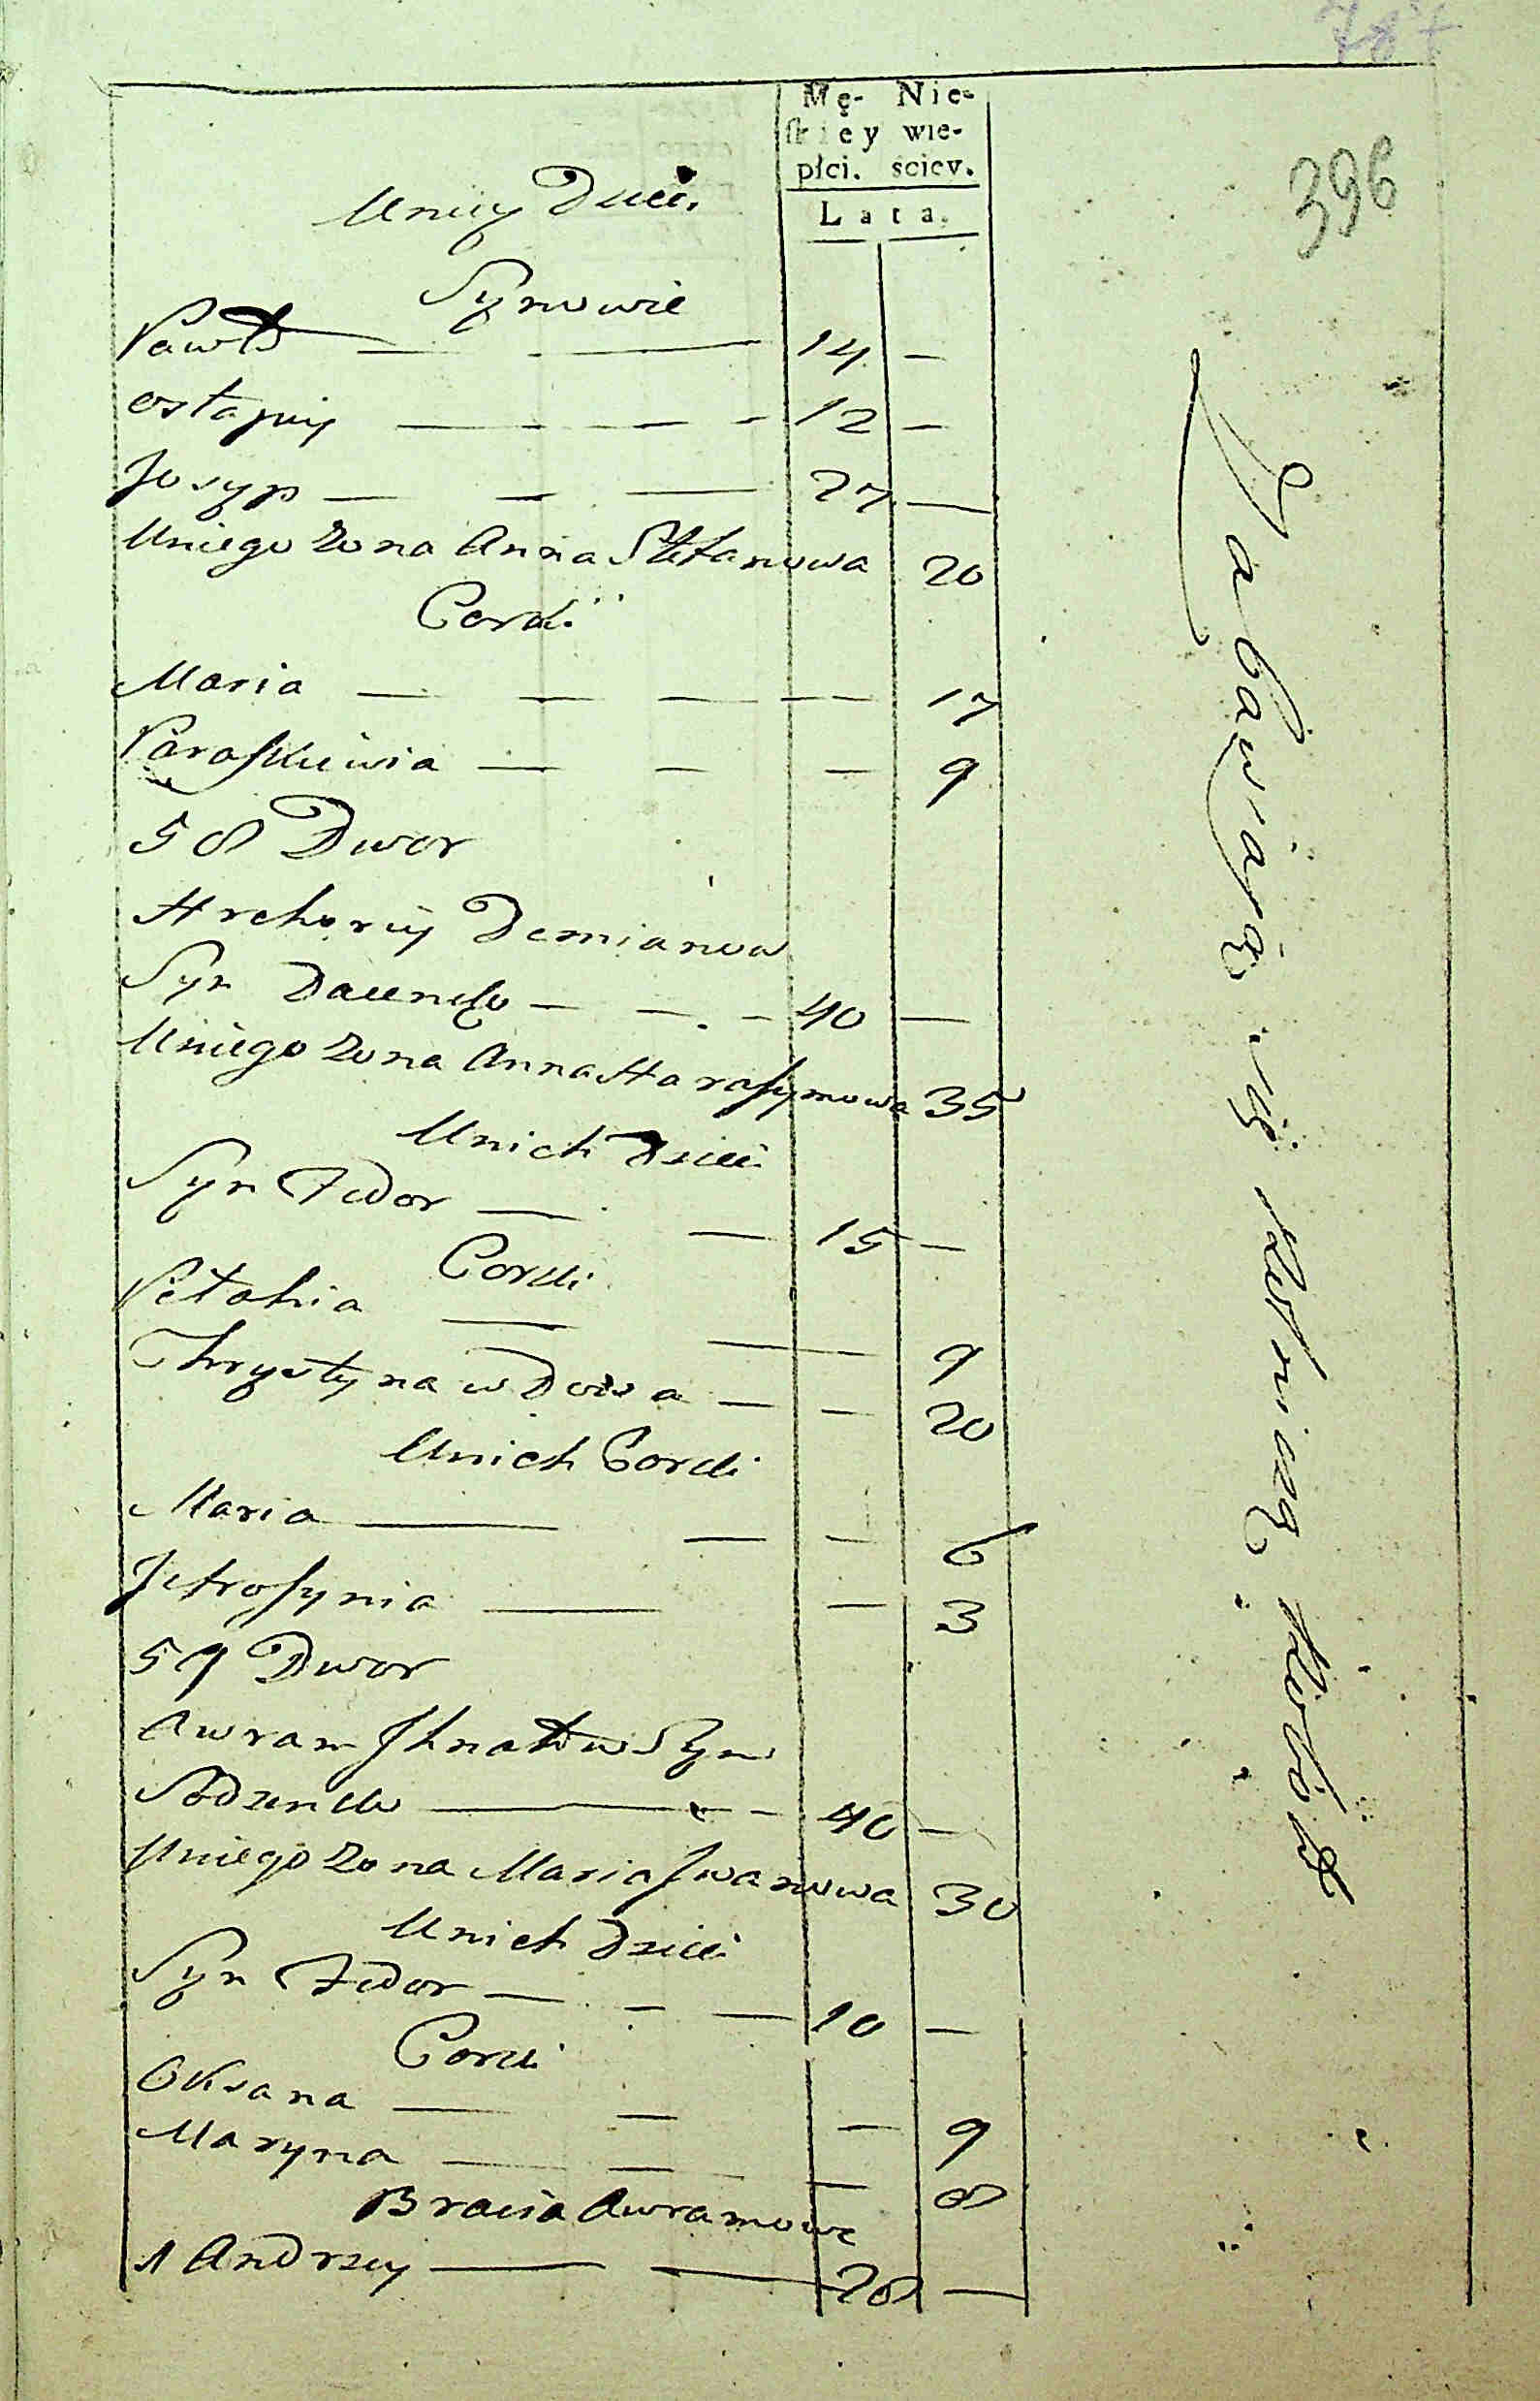 396
Mę- Nie-
skiey wie-
płci. sciey.
Lata.
Uniey Dzieci
Synowie
Pawło — — 14 —
Ostapiy — — — — 12 —
Josyp — — — 27 —
Uniego Zona Anna Stefanowa 20
Corki
Maria — — — — 17
Paraskiewia — — — 9
58 Dwor
Hrehoriy Demianow
Syn — — — 40 —
Uniego Zona Anna Harasymowa 35
Unich Dzieci
Syn Fedor — — 15 —
Corki
Pełahia — — — 9
Chrystyna wDowa — — 20
Unich Corki
Maria — — — 6
Jefrosynia — — 3
59 Dwor
Awram Ihnatow Syn
— — 40 —
Uniego Zona Maria Iwanowa 30
Unich Dzieci
Syn Fedor — — — 10 —
Corki
Oksana — — — 9
Maryna — — — 8
Bracia Awramowe
1 Andrzey — — 28 —
Zabawiaią się Rolniczą Robotą